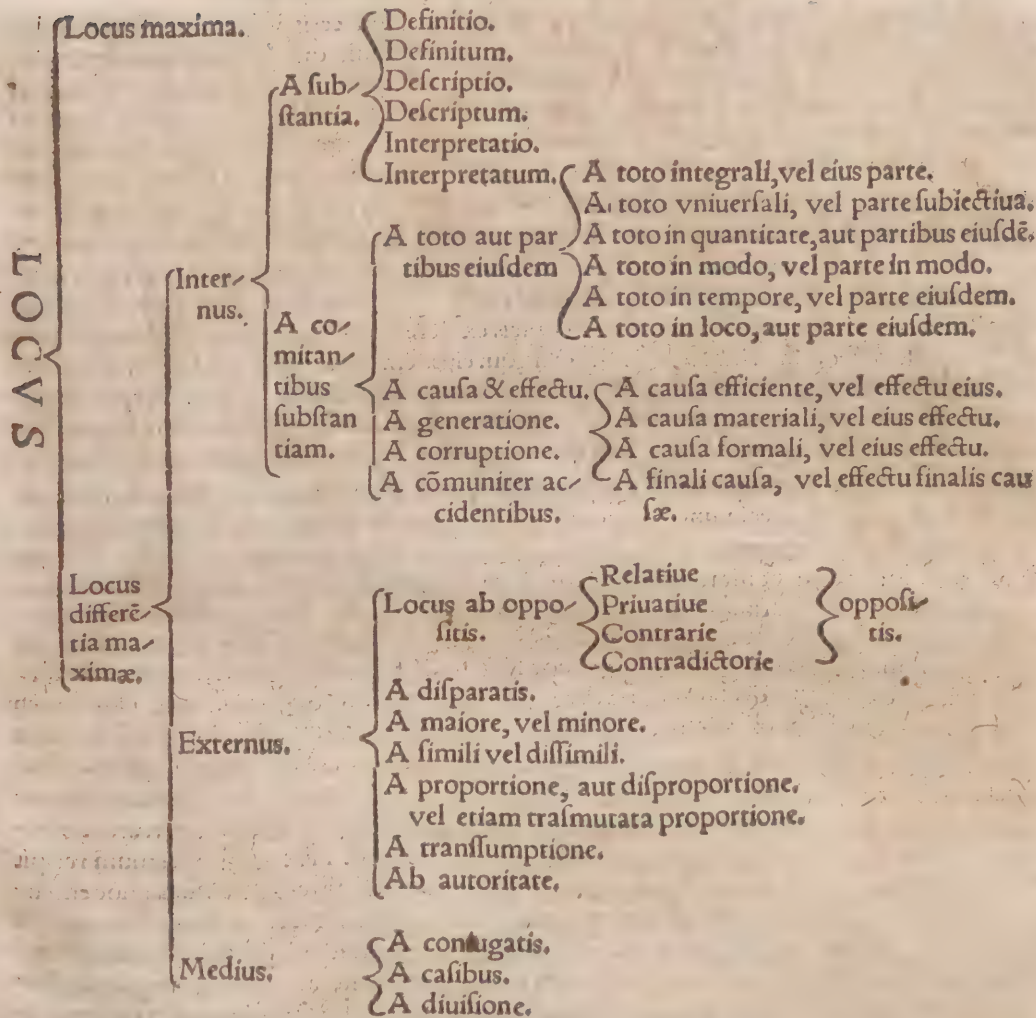 LOCVS
Locus maxima.
Locus
differē⸗
tia ma⸗
ximæ.
Inter⸗
nus.
A ſub⸗
ſtantia.
Definitio.
Definitum.
Deſcriptio.
Deſcriptum.
Interpretatio.
Interpretatum.
A co⸗
mitan⸗
tibus
ſubſtan
tiam.
A toto aut par
tibus eiuſdem
A toto integrali, vel eius parte.
A toto vniuerſali, vel parte ſubiectiua.
A toto in quantitate, aut partibus eiuſdē.
A toto in modo, vel parte in modo.
A toto in tempore, vel parte eiuſdem.
A toto in loco, aut parte eiuſdem.
A cauſa & effectu.
A generatione.
A corruptione.
A cōmuniter ac⸗
cidentibus.
A cauſa efficiente, vel effectu eius.
A cauſa materiali, vel eius effectu.
A cauſa formali, vel eius effectu.
A finali cauſa, vel effectu finalis cau
ſæ.
Externus.
Locus ab oppo⸗
ſitis.
Relatiue
Priuatiue
Contrarie
Contradictorie
oppoſi⸗
tis.
A diſparatis.
A maiore, vel minore.
A ſimili vel diſſimili.
A proportione, aut diſproportione.
vel etiam traſmutata proportione.
A tranſſumptione.
Ab autoritate.
Medius.
A coniugatis.
A caſibus.
A diuiſione.